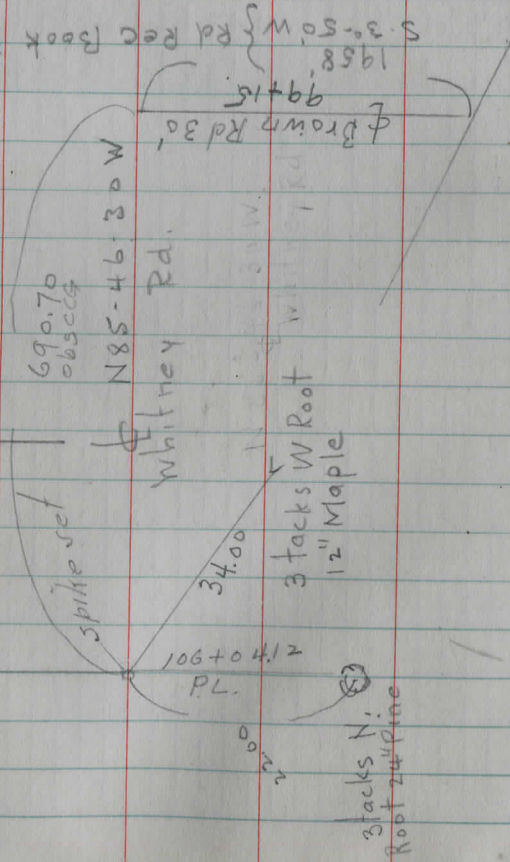 S. 3°-50' W Rd Rec Book
1958
99+15
℄ Brown Rd 30'
690.70
obs
N85-46-30W
Whitney Rd.
Whitney Rd
spike set
34.00
3 tacks W Root
12" Maple
P.L.
22.00
3 tacks N.
Root 24" Pine